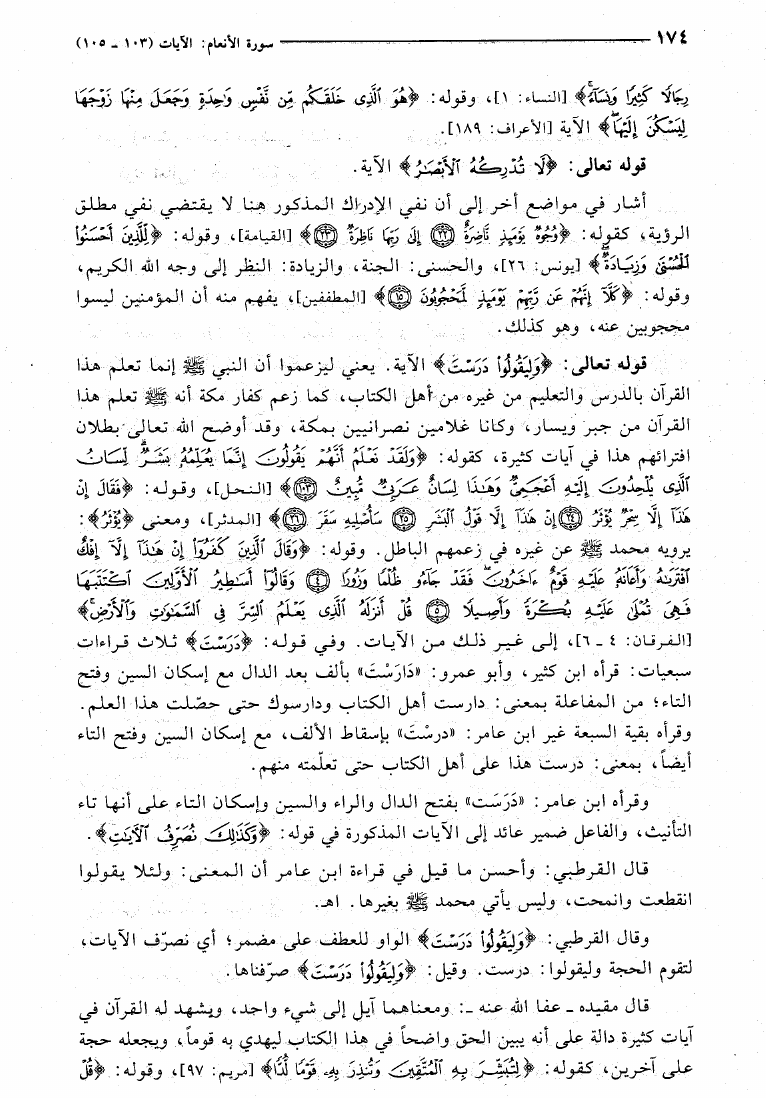 ١٧٤ سورة الأنعام: الآيات (١٠٣ ـ ١٠٥)
رِجَالًا كَثِيرًا وَنِسَآءً﴾ [النساء: ١]، وقوله: ﴿هُوَ ٱلَّذِى خَلَقَكُم مِّن نَّفْسٍ وَٰحِدَةٍ وَجَعَلَ مِنْهَا زَوْجَهَا
لِيَسْكُنَ إِلَيْهَا﴾ الآية [الأعراف: ١٨٩].
قوله تعالى: ﴿لَّا تُدْرِكُهُ ٱلْأَبْصَٰرُ﴾ الآية.
أشار في مواضع أخر إلى أن نفي الإدراك المذكور هنا لا يقتضي نفي مطلق
الرؤية، كقوله: ﴿وُجُوهٌ يَوْمَئِذٍ نَّاضِرَةٌ ۝٢٢ إِلَىٰ رَبِّهَا نَاظِرَةٌ ۝٢٣﴾ [القيامة]، وقوله: ﴿لِّلَّذِينَ أَحْسَنُوا۟
ٱلْحُسْنَىٰ وَزِيَادَةٌ﴾ [يونس: ٢٦]، والحسنى: الجنة، والزيادة: النظر إلى وجه الله الكريم،
وقوله: ﴿كَلَّآ إِنَّهُمْ عَن رَّبِّهِمْ يَوْمَئِذٍ لَّمَحْجُوبُونَ ۝١٥﴾ [المطففين]، يفهم منه أن المؤمنين ليسوا
محجوبين عنه، وهو كذلك.
قوله تعالى: ﴿وَلِيَقُولُوا۟ دَرَسْتَ﴾ الآية. يعني ليزعموا أن النبي ﷺ إنما تعلم هذا
القرآن بالدرس والتعليم من غيره من أهل الكتاب، كما زعم كفار مكة أنه ﷺ تعلم هذا
القرآن من جبر ويسار، وكانا غلامين نصرانيين بمكة، وقد أوضح الله تعالى بطلان
افترائهم هذا في آيات كثيرة، كقوله: ﴿وَلَقَدْ نَعْلَمُ أَنَّهُمْ يَقُولُونَ إِنَّمَا يُعَلِّمُهُۥ بَشَرٌ لِّسَانُ
ٱلَّذِى يُلْحِدُونَ إِلَيْهِ أَعْجَمِىٌّ وَهَٰذَا لِسَانٌ عَرَبِىٌّ مُّبِينٌ ۝١٠٣﴾ [النحل]، وقوله: ﴿فَقَالَ إِنْ
هَٰذَآ إِلَّا سِحْرٌ يُؤْثَرُ ۝٢٤ إِنْ هَٰذَآ إِلَّا قَوْلُ ٱلْبَشَرِ ۝٢٥ سَأُصْلِيهِ سَقَرَ ۝٢٦﴾ [المدثر]، ومعنى ﴿يُؤْثَرُ﴾:
يرويه محمد ﷺ عن غيره في زعمهم الباطل. وقوله: ﴿وَقَالَ ٱلَّذِينَ كَفَرُوٓا۟ إِنْ هَٰذَآ إِلَّآ إِفْكٌ
ٱفْتَرَىٰهُ وَأَعَانَهُۥ عَلَيْهِ قَوْمٌ ءَاخَرُونَ فَقَدْ جَآءُو ظُلْمًا وَزُورًا ۝٤ وَقَالُوٓا۟ أَسَٰطِيرُ ٱلْأَوَّلِينَ ٱكْتَتَبَهَا
فَهِىَ تُمْلَىٰ عَلَيْهِ بُكْرَةً وَأَصِيلًا ۝٥ قُلْ أَنزَلَهُ ٱلَّذِى يَعْلَمُ ٱلسِّرَّ فِى ٱلسَّمَٰوَٰتِ وَٱلْأَرْضِ﴾
[الفرقان: ٤ ـ ٦]، إلى غير ذلك من الآيات. وفي قوله: ﴿دَرَسْتَ﴾ ثلاث قراءات
سبعيات: قرأه ابن كثير، وأبو عمرو: «دَارَسْتَ» بألف بعد الدال مع إسكان السين وفتح
التاء؛ من المفاعلة بمعنى: دارست أهل الكتاب ودارسوك حتى حصّلت هذا العلم.
وقرأه بقية السبعة غير ابن عامر: «درسْتَ» بإسقاط الألف، مع إسكان السين وفتح التاء
أيضاً، بمعنى: درست هذا على أهل الكتاب حتى تعلّمته منهم.
وقرأه ابن عامر: «دَرَسَت» بفتح الدال والراء والسين وإسكان التاء على أنها تاء
التأنيث، والفاعل ضمير عائد إلى الآيات المذكورة في قوله: ﴿وَكَذَٰلِكَ نُصَرِّفُ ٱلْأٓيَٰتِ﴾.
قال القرطبي: وأحسن ما قيل في قراءة ابن عامر أن المعنى: ولئلا يقولوا
انقطعت وانمحت، وليس يأتي محمد ﷺ بغيرها. اهـ.
وقال القرطبي: ﴿وَلِيَقُولُوا۟ دَرَسْتَ﴾ الواو للعطف على مضمر؛ أي نصرّف الآيات،
لتقوم الحجة وليقولوا: درست. وقيل: ﴿وَلِيَقُولُوا۟ دَرَسْتَ﴾ صرّفناها.
قال مقيده ـ عفا الله عنه ـ: ومعناهما آيل إلى شيء واحد، ويشهد له القرآن في
آيات كثيرة دالة على أنه يبين الحق واضحاً في هذا الكتاب ليهدي به قوماً، ويجعله حجة
على آخرين، كقوله: ﴿لِتُبَشِّرَ بِهِ ٱلْمُتَّقِينَ وَتُنذِرَ بِهِۦ قَوْمًا لُّدًّا﴾ [مريم: ٩٧]، وقوله: ﴿قُلْ